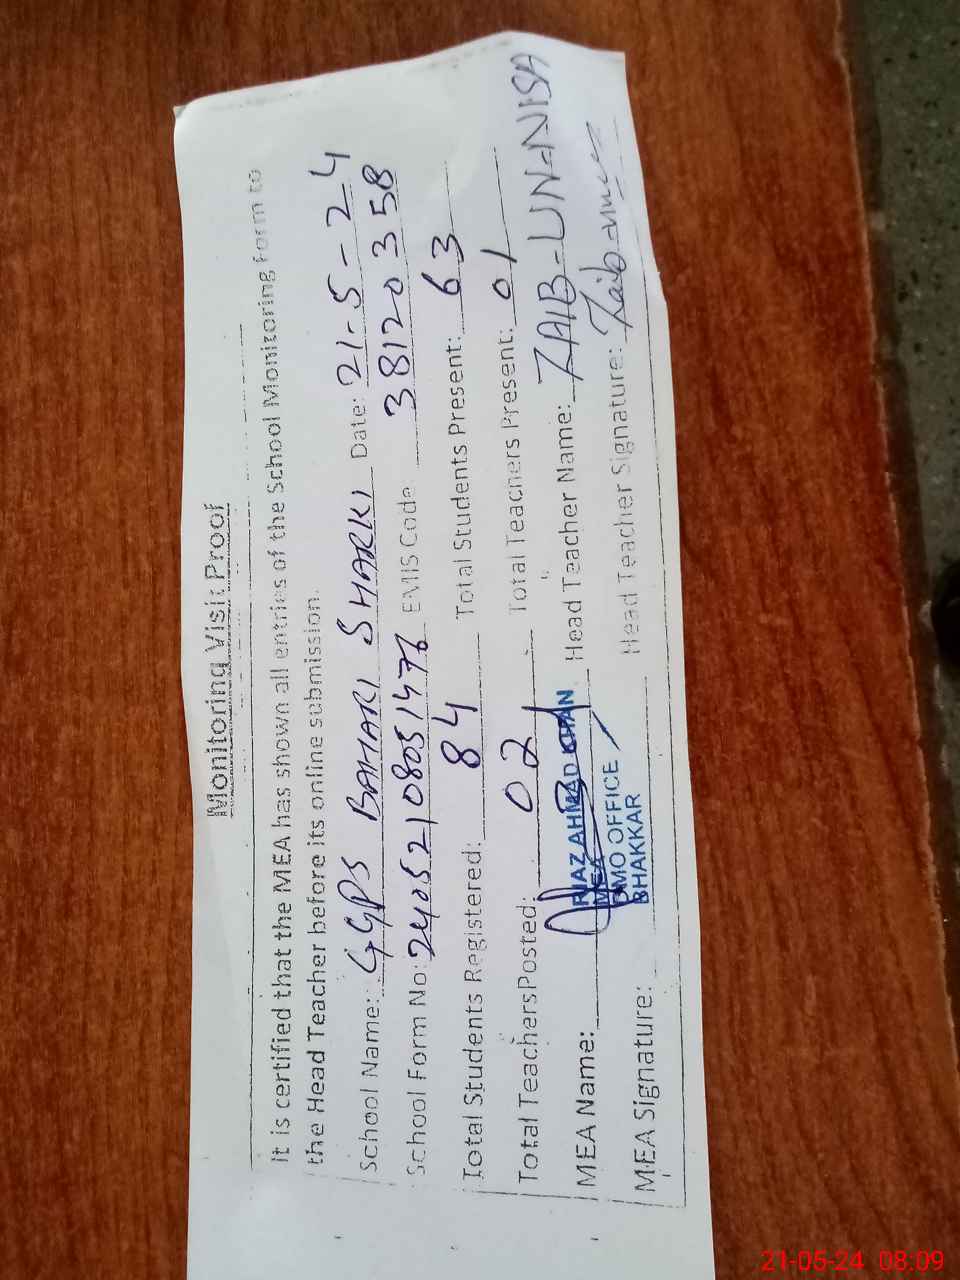 Monitoring Visit Proof
It is certified that the MEA has shown all entries of the School Monitoring Form to
the Head Teacher before its online submission.
School Name: GGPS BAHARI SHARKI Date: 21-5-24
School Form No: 24052108051476 EMIS Code 38120358
Total Students Registered: 84 Total Students Present: 63
Total TeachersPosted: 02 Total Teachers Present: 01
MEA Name: RIAZ AHMAD KHAN Head Teacher Name: ZAIB-UN-NISA
MEA
DMO OFFICE
BHAKKAR
MEA Signature: Head Teacher Signature:
21-05-24 08:09